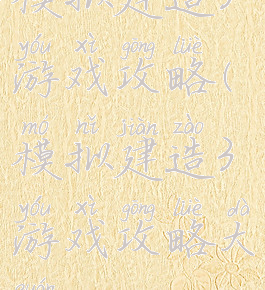 模拟建造)
yóu xì gōng lüè
游戏攻略(
mó nǐ jiàn zào
模拟建造)
yóu xì gōng lüè dà
游戏攻略大
quán